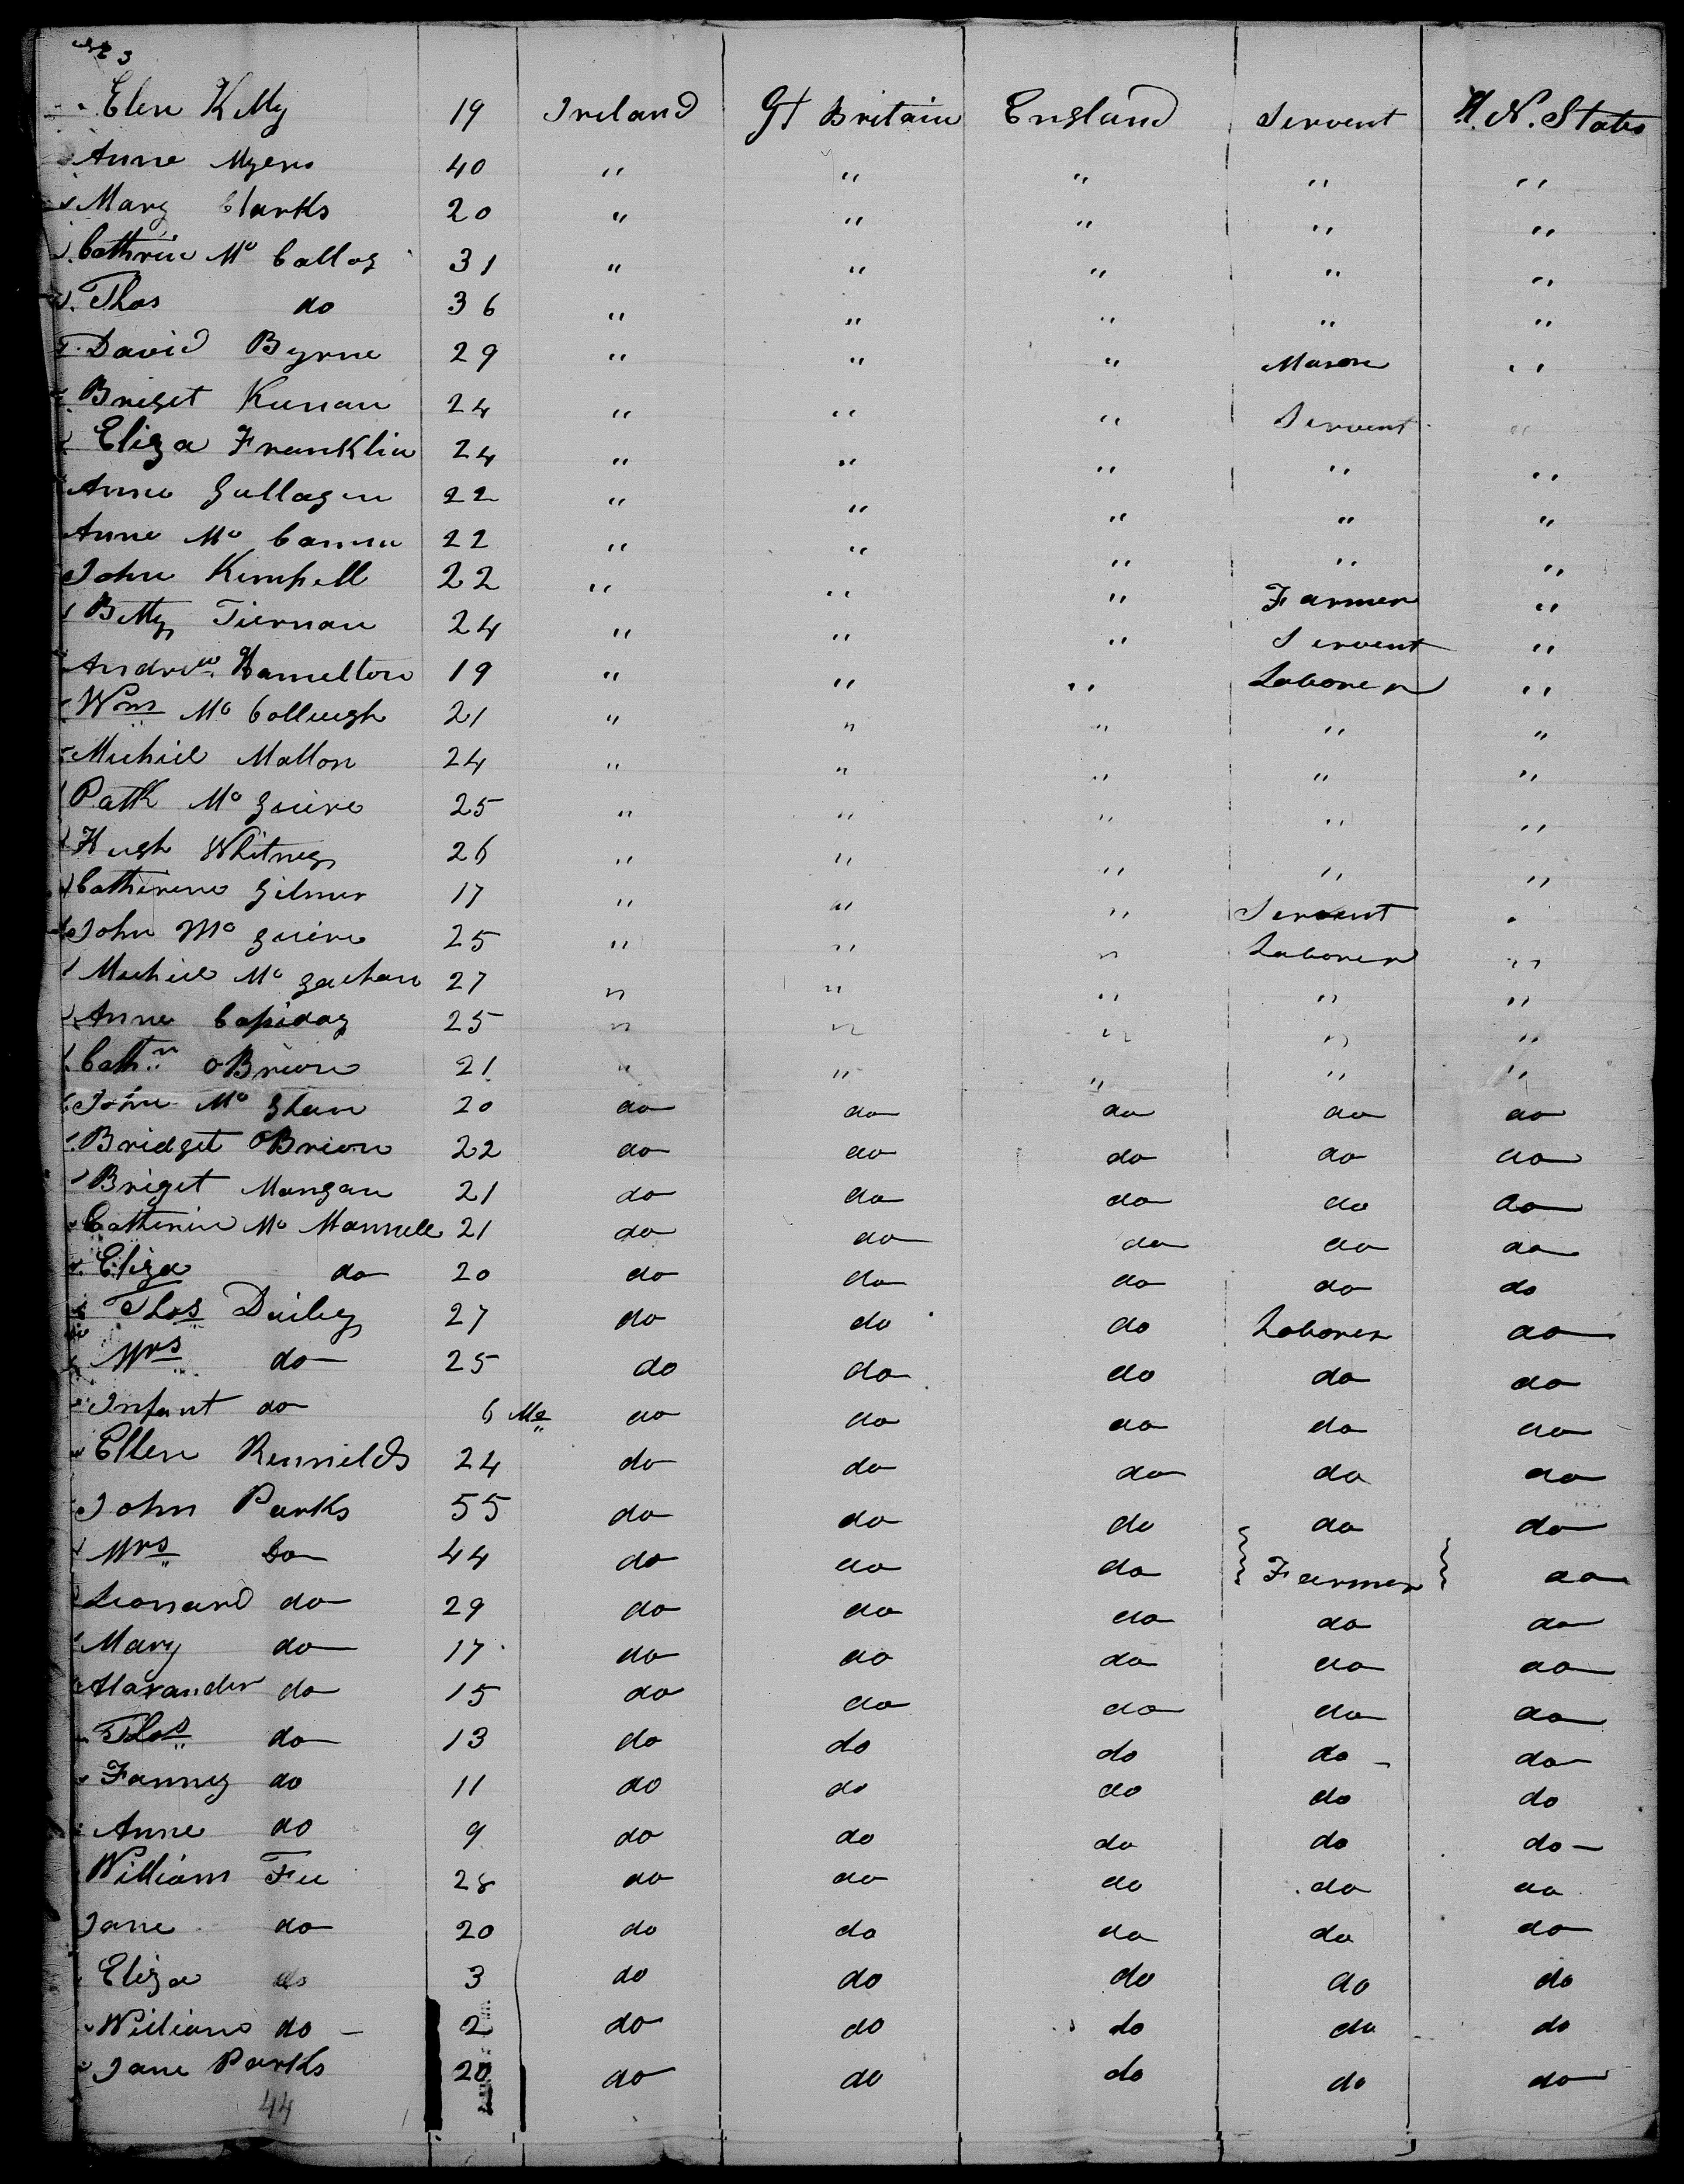 3
Elen Kelly 19 Ireland Gt Britain England Servent U. N. States
Anne Myers 40 " " " " "
Mary Clarks 20 " " " " "
Cathrin Mc Calloy 31 " " " " "
Thos do 36 " " " " "
David Byrne 29 " " " Mason "
Briget Keenan 24 " " " Servent "
Eliza Franklin 24 " " " " "
Anne Gallagen 22 " " " " "
Anne Mc 22 " " " " "
John Kempell 22 " " " Farmer "
Betty Tiernan 24 " " " Servent "
Andrew Hamelton 19 " " " Laborer "
Wm Mc Collugh 21 " " " " "
Michiel Mallon 24 " " " " "
Patk Mc Guire 25 " " " " "
Hugh Whitney 26 " " " " "
Catherine Gilmer 17 " " " Servent "
John Mc Guire 25 " " " Laborer "
Michiel Mc Gachan 27 " " " " "
Anne Cassiday 25 " " " " "
Cathn OBrion 21 " " " " "
John Mc Ghan 20 do do do do do
Bridget OBrion 22 do do do do do
Briget Mangan 21 do do do do do
Catherin Mc Mannell 21 do do do do do
Eliza do 20 do do do do do
Thos Dailey 27 do do do Laborer do
Mrs do 25 do do do do do
Infant do 6 Mo do do do do do
Ellen Runnilds 24 do do do do do
John Parks 55 do do do do do
Mrs Do 44 do do do Farmer do
Leonard do 29 do do do do do
Mary do 17 do do do do do
Alaxander do 15 do do do do do
Thos do 13 do do do do do
Fanny do 11 do do do do do
Anne do 9 do do do do do
William Fee 28 do do do do do
Jane do 20 do do do do do
Eliza do 3 do do do do do
William do 2 do do do do do
Jane Parks 20 do do do do do
44